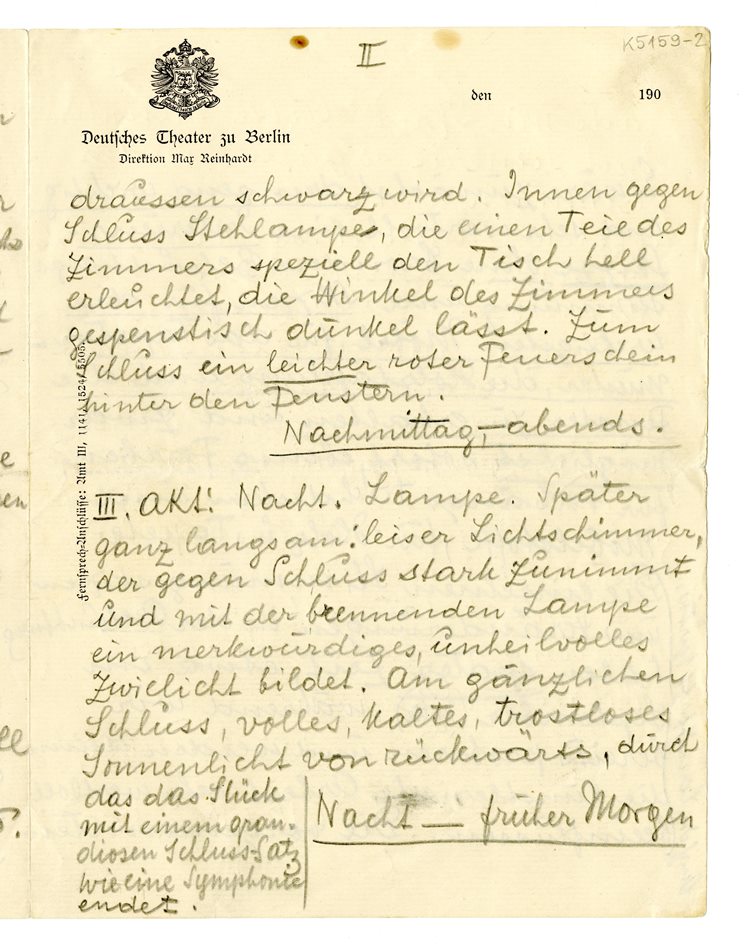 II
K5159-2
den 190
Deutsches Theater zu Berlin
Direktion Max Reinhardt
draussen schwarz wird. Innen gegen
Schluss Stehlampe, die einen Teie des
Zimmers speziell den Tisch hell
erleuchtet, die Winkel des Zimmers
gespenstisch dunkel lässt. Zum
Schluss ein leichter roter Feuerschein
hinter den Fenstern.
Nachmittag,-abends.
III. Akt: Nacht. Lampe. Später
ganz langsam: leiser Lichtschimmer,
der gegen Schluss stark zunimmt
und mit der brennenden Lampe
ein merkwürdiges, unheilvolles
Zwielicht bildet. Am gänzlichen
Schluss, volles, kaltes, trostloses
Sonnenlicht von rückwärts, durch
das das Stück
mit einem gran-
diosen Schluss-Satz
wie eine Symphonie
endet.
Nacht — früher Morgen
Fernsprech-Anschlüsse: Amt III, 1141, 1524, 5505.